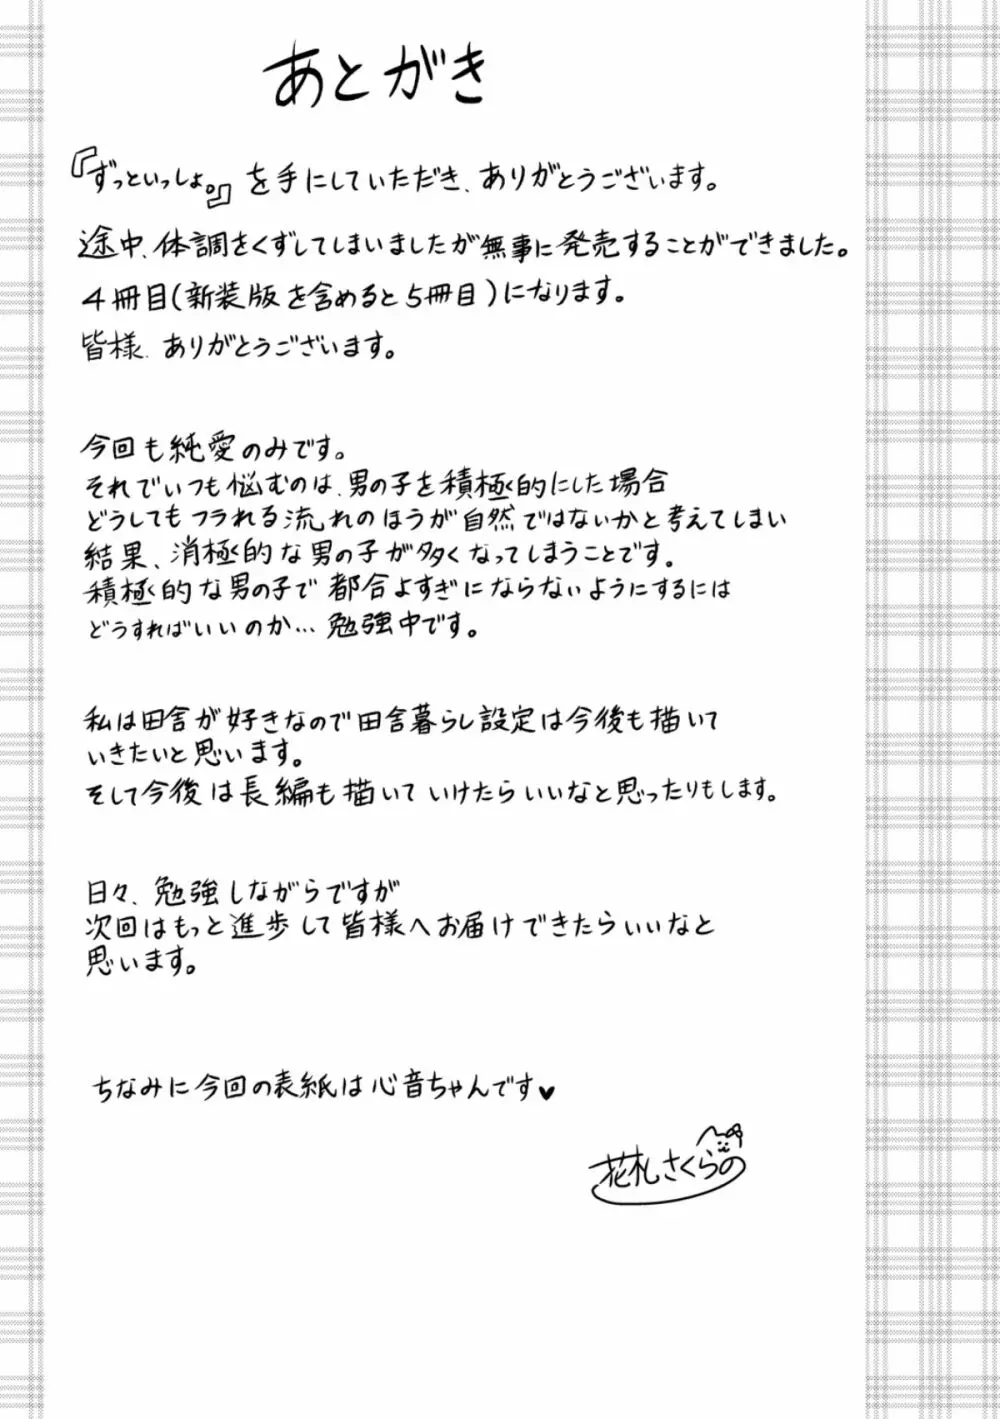 あとがき
『ずっといっしょ。』を手にしていただき、ありがとうございます。
途中、体調をくずしてしまいましたが無事に発売することができました。
4冊目(新装版を含めると5冊目)になります。
皆様、ありがとうございます。
今回も純愛のみです。
それでいつも悩むのは、男の子を積極的にした場合
どうしてもフラれる流れのほうが自然ではないかと考えてしまい
結果、消極的な男の子が多くなってしまうことです。
積極的な男の子で都合よすぎにならないようにするには
どうすればいいのか…勉強中です。
私は田舎が好きなので田舎暮らし設定は今後も描いて
いきたいと思います。
そして今後は長編も描いていけたらいいなと思ったりもします。
日々、勉強しながらですが
次回はもっと進歩して皆様へお届けできたらいいなと
思います。
ちなみに今回の表紙は心音ちゃんです♥
花札さくらの